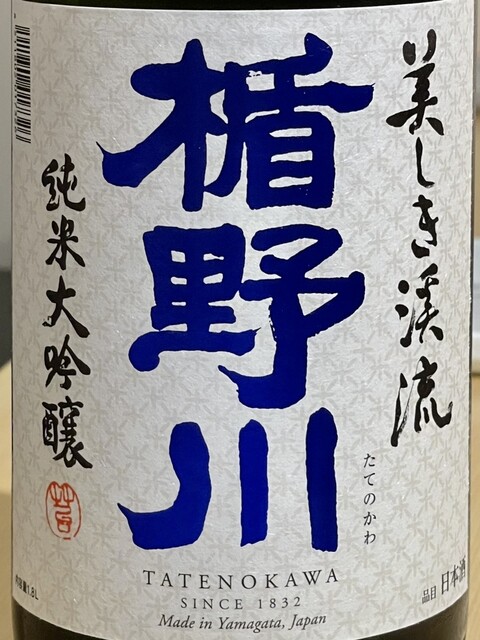 美しき渓流
楯野川
たてのかわ
純米大吟醸
TATENOKAWA
SINCE 1832
Made in Yamagata, Japan
内容量1.8L
品目 日本酒